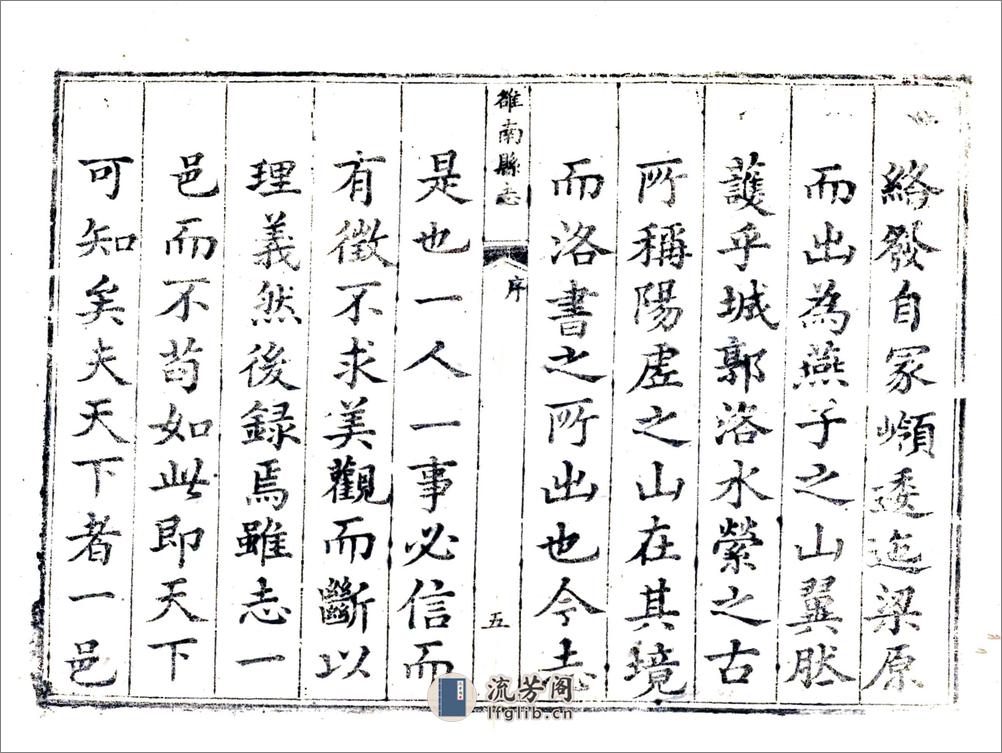 絡發自冢嶺逶迤梁原
而出為燕子之山翼然
護乎城郭洛水縈之古
所稱陽虛之山在其境
而洛書之所出也今志
雒南縣志
序
五
是也一人一事必信而
有徵不求美觀而斷以
理義然後録焉雖志一
邑而不苟如此即天下
可知矣夫天下者一邑
流芳阁
lfglib.cn